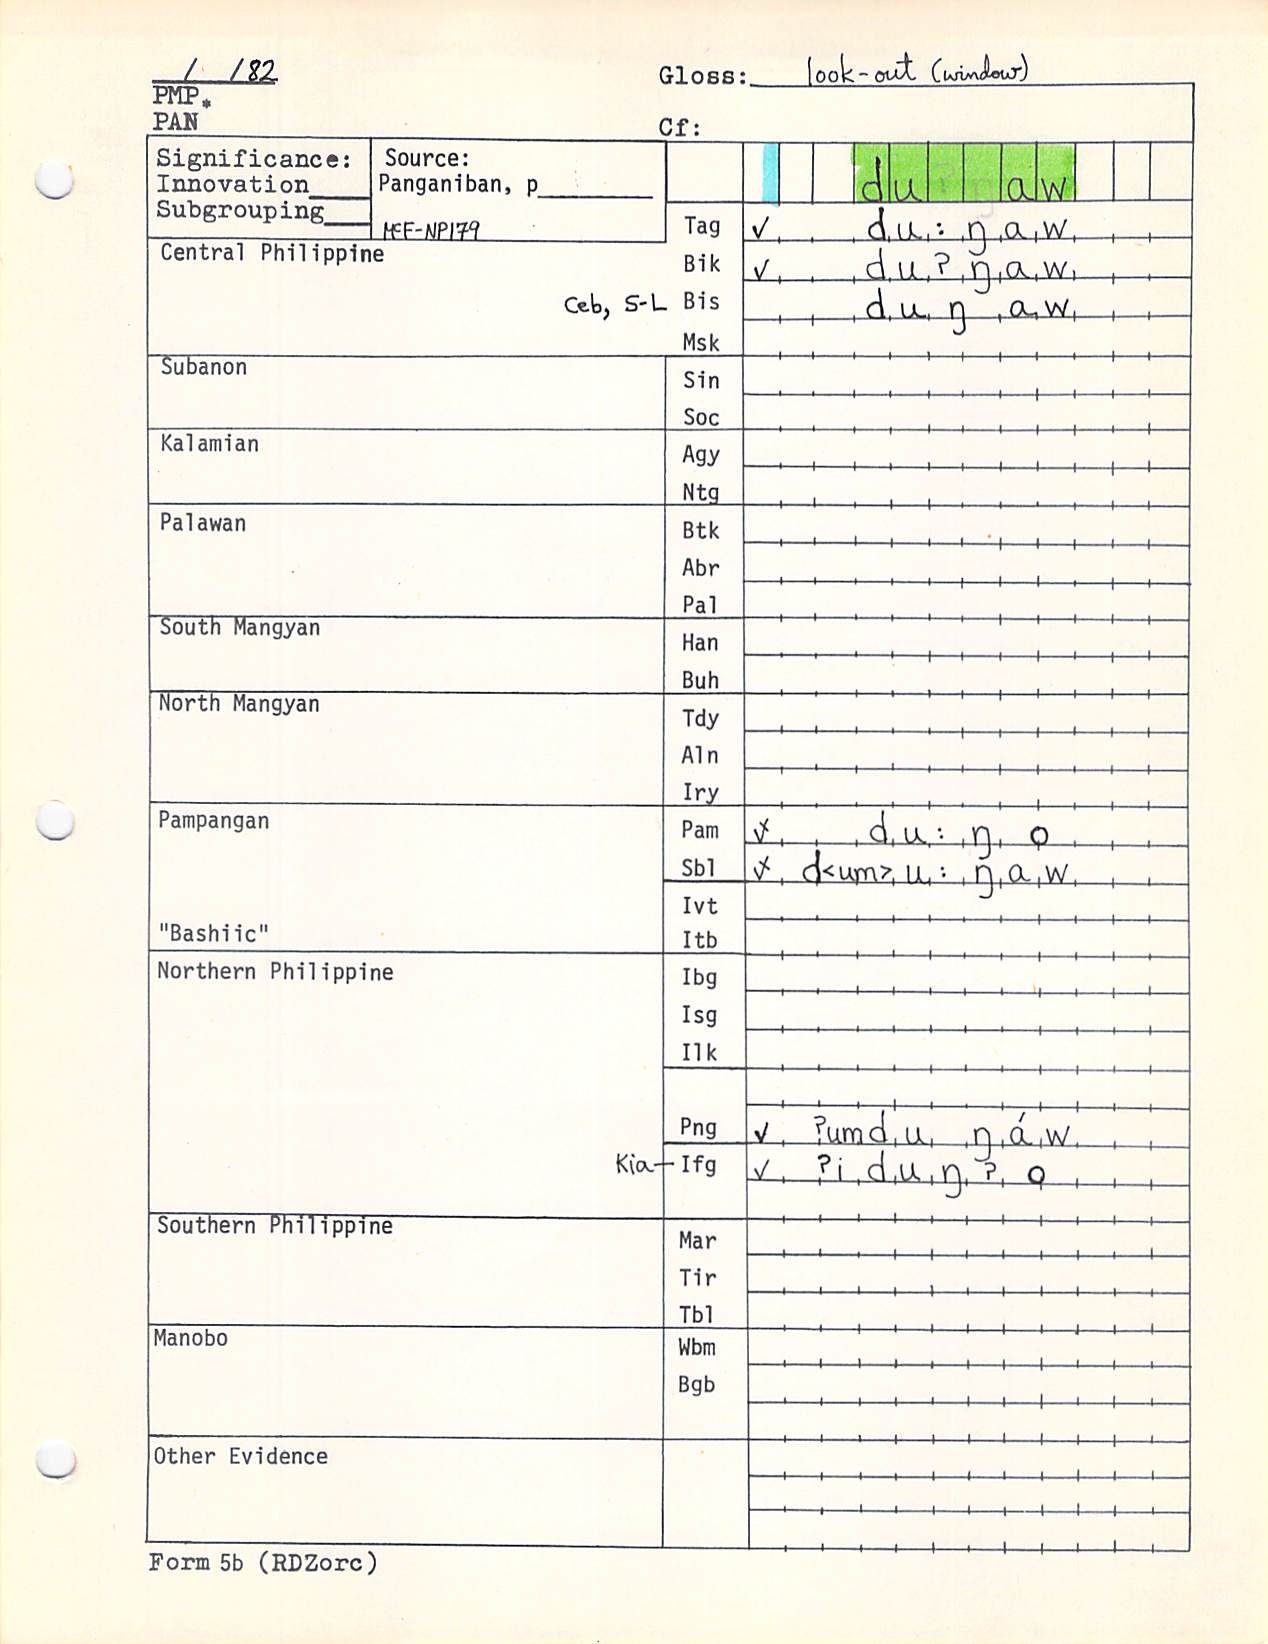 / /82
Gloss: look-out (window)
PMP*
PAN
Cf:
Significance:
Innovation
Subgrouping
Source:
Panganiban, p
MCF-NP179
du?ŋaw
Central Philippine
Tag ✓ du:ŋaw
Bik ✓ du?ŋaw
Ceb, S-L Bis duŋ aw
Msk
Subanon
Sin
Soc
Kalamian
Agy
Ntg
Palawan
Btk
Abr
Pal
South Mangyan
Han
Buh
North Mangyan
Tdy
Aln
Iry
Pampangan
Pam du:ŋo
Sbl d<um>u:ŋaw
Ivt
"Bashiic"
Itb
Northern Philippine
Ibg
Isg
Ilk
Png ✓ ?umdu ŋáw
Kia— Ifg ✓ ?iduŋ?o
Southern Philippine
Mar
Tir
Tbl
Manobo
Wbm
Bgb
Other Evidence
Form 5b (RDZorc)